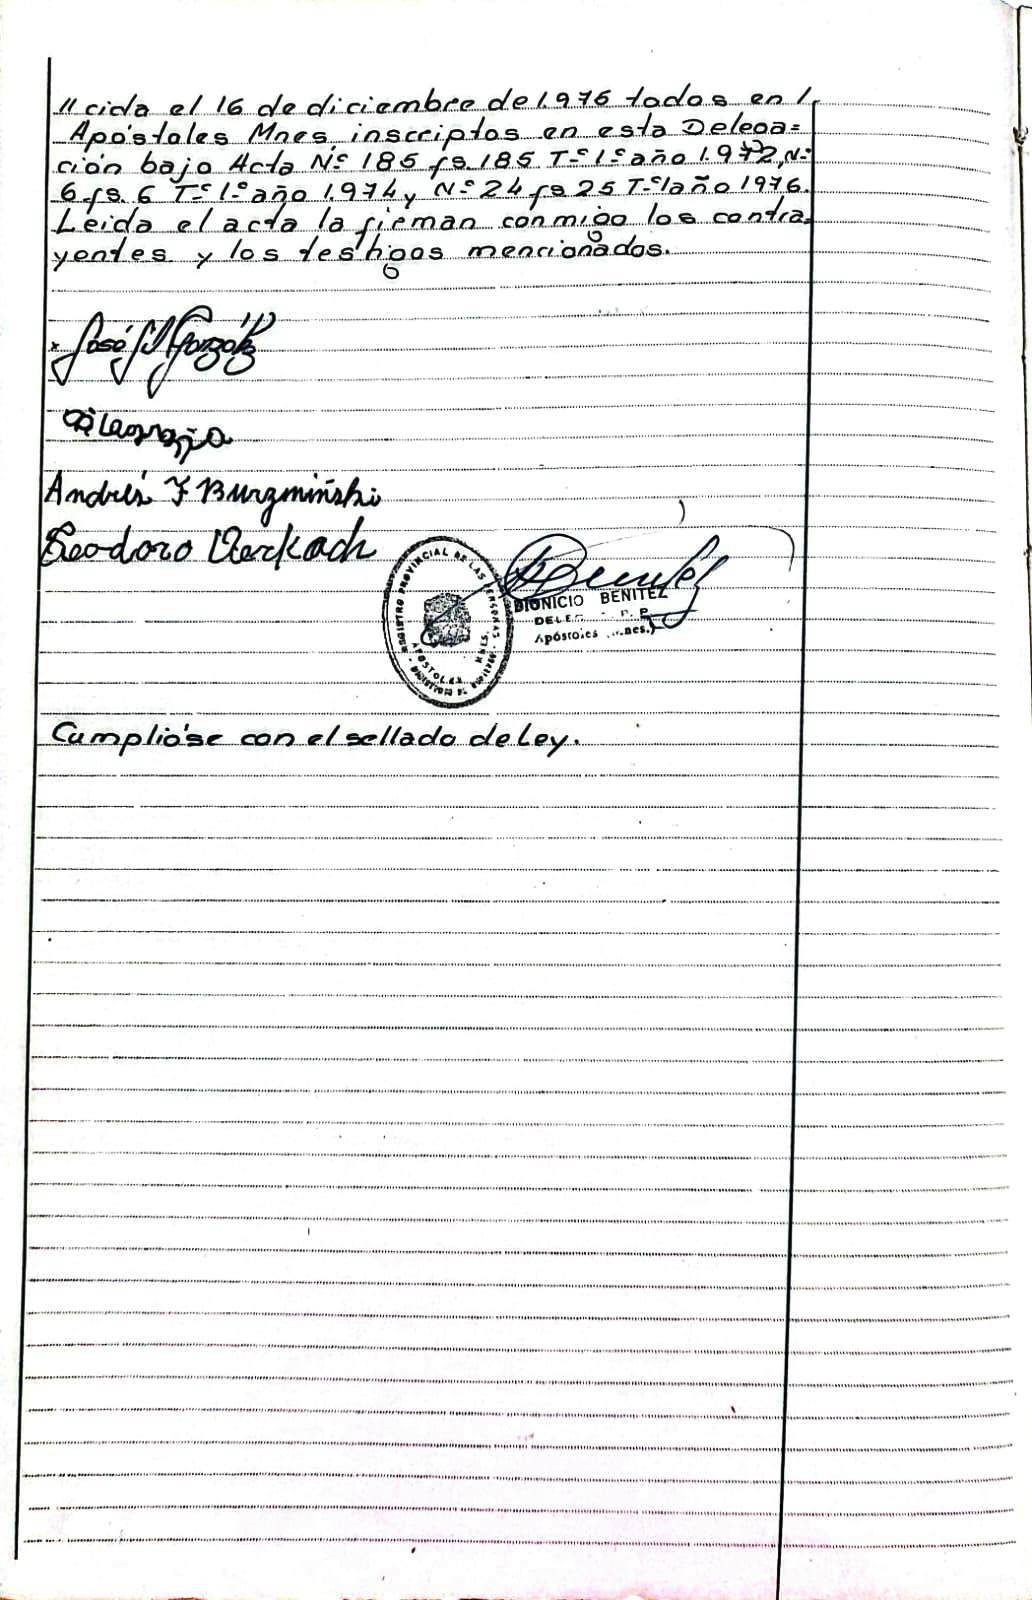 //cida el 16 de diciembre de 1.976 todos en
Apóstoles Mnes. inscriptos en esta Delega=
ción bajo Acta Nº 185 fs. 185 Tº 1º año 1.972, Nº
6 fs. 6 Tº 1º año 1.974 y Nº 24 fs 25 Tº 1a año 1976.
Leida el acta la firman conmigo los contra_
yentes y los testigos mencionados.
José Gonzá
Andrés F Burzmiński
Teodoro
REGISTRO PROVINCIAL DE LAS PERSONAS
APOSTOLES MNES.
DIONICIO BENITEZ
DELEG
Apóstoles nes.)
Cumplióse con el sellado de Ley.